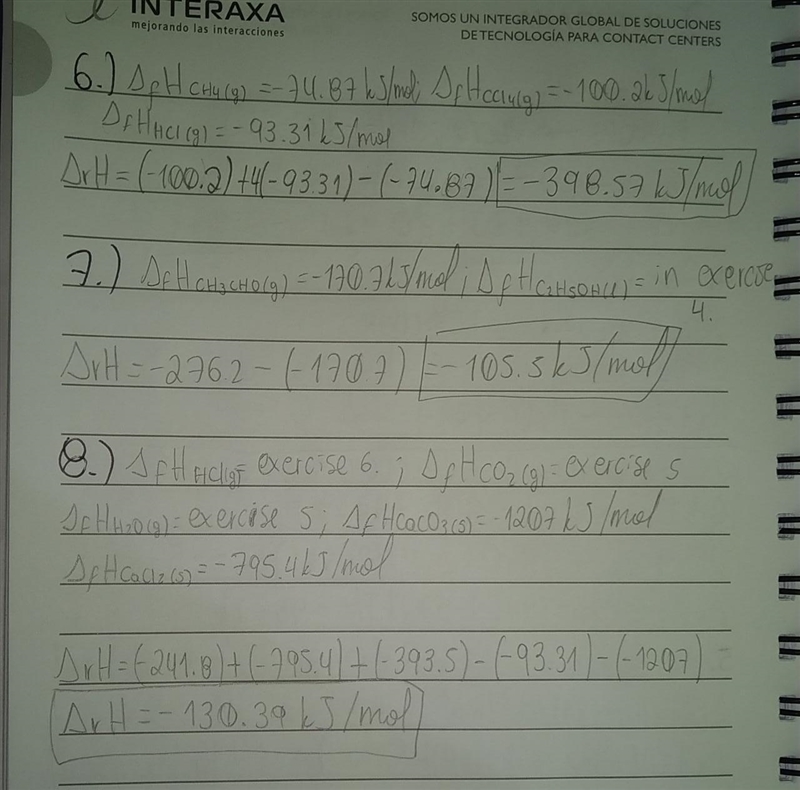 INTERAXA
mejorando las interacciones
SOMOS UN INTEGRADOR GLOBAL DE SOLUCIONES
DE TECNOLOGÍA PARA CONTACT CENTERS
6.) ΔfH CH4(g) = -74.87 kJ/mol; ΔfH CCl4(g) = -100.2 kJ/mol
ΔfH HCl(g) = -93.31 kJ/mol
ΔrH = (-100.2) + 4(-93.31) - (-74.87) = -398.57 kJ/mol
7.) ΔfH CH3CHO(g) = -170.7 kJ/mol; ΔfH C2H5OH(l) = in exercise
4.
ΔrH = -276.2 - (-170.7) = -105.5 kJ/mol
8.) ΔfH HCl(g) = exercise 6. ; ΔfH CO2(g) = exercise 5
ΔfH H2O(g) = exercise 5; ΔfH CaCO3(s) = -1207 kJ/mol
ΔfH CaCl2(s) = -795.4 kJ/mol
ΔrH = (-241.8) + (-795.4) + (-393.5) - (-93.31) - (-1207) =
ΔrH = -130.39 kJ/mol